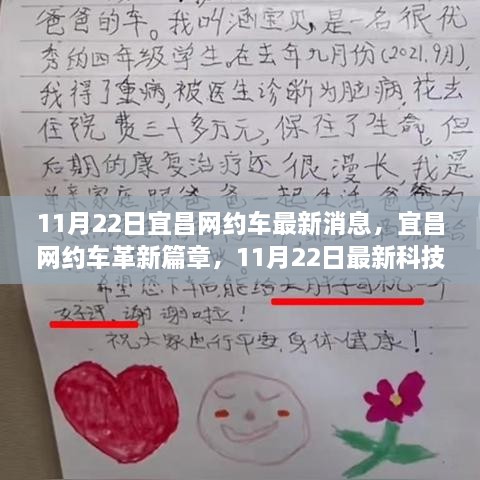 爸爸的车。我叫涵宝贝,是一名很优
秀的四年级学生。在去年九月份(2021.9月),
我得了重病,被医生诊断为脑病,花去
住院费三十多万元,保住了生命,但
后期的康复治疗还很漫长,我是
11月22日宜昌网约车最新消息，宜昌
网约车革新篇章，11月22日最新科技
希望您下车后能给大胖子司机一个
好评,谢谢啦!
祝大家出行平安,身体健康!